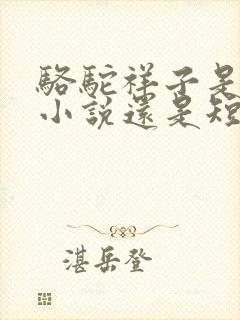 駱駝祥子是
小説還是短
湛岳登